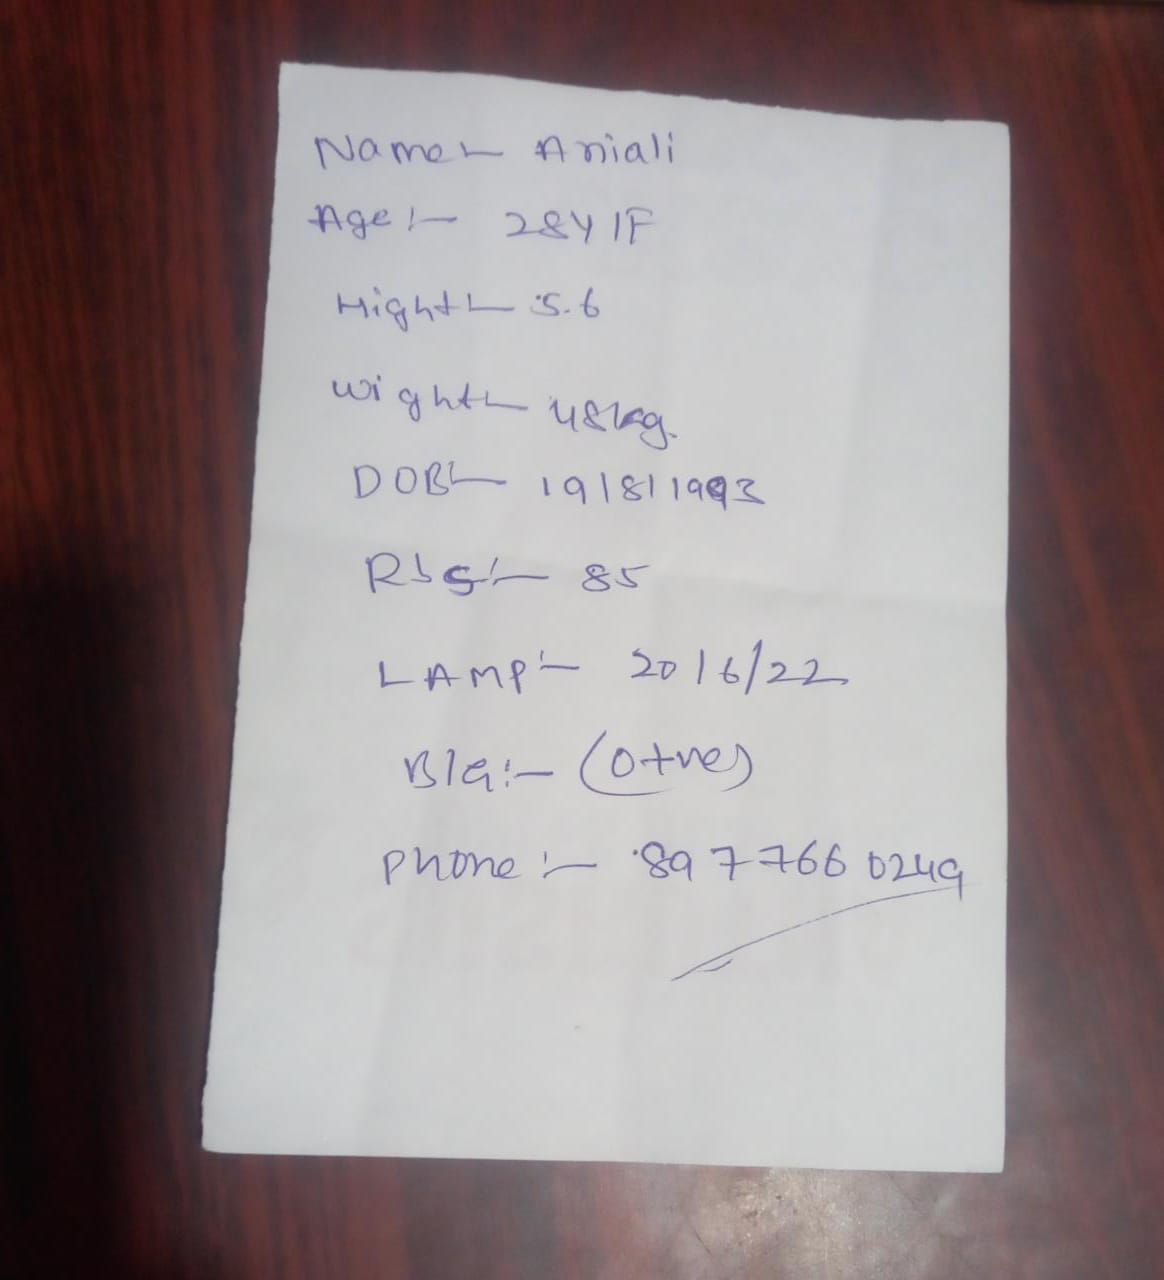 Name:- Aniali
Age:- 28Y/F
Hight:- 5.6
Wight:- 48kg.
DOB:- 19/8/1993
Rbs:- 85
LAMP:- 20/6/22
B/G:- (O+ve)
Phone:- 8977660249